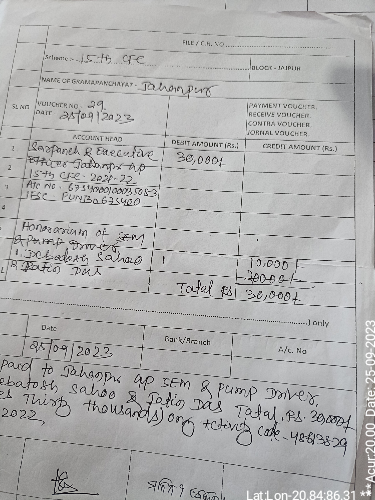 FILE / C.B. NO
Scheme :- 15th CFC
BLOCK - JAJPUR
NAME OF GRAMAPANCHAYAT - Jahanpur
SL NO. VOUCHER NO. 29
DATE 25/09/2023
PAYMENT VOUCHER.
RECEIVE VOUCHER.
CONTRA VOUCHER.
JORNAL VOUCHER
ACCOUNT HEAD DEBIT AMOUNT (Rs.) CREDIT AMOUNT (Rs.)
1 Sarpanch & Executive 30,000/-
2 Officer Jahanpur GP
15th CFC - 2021-22
3 A/c No.
IFSC PUNB0673400
4
Honorarium of SEM
& Pump Driver
1. Debatosh Sahoo 10,000/-
2. Jatin Das 20000/-
Total Rs 30,000/-
) only
Date Bank/Branch A/c. No
25/09/2023
paid to Jahanpur GP SEM & Pump Driver,
Debatosh Sahoo & Jatin Das Total Rs. 30,000/-
Thirty thousands) only Activity Code -
2022,
Lat:Lon-20.84:86.31 *** Acur:20.00 Date:25-09-2023